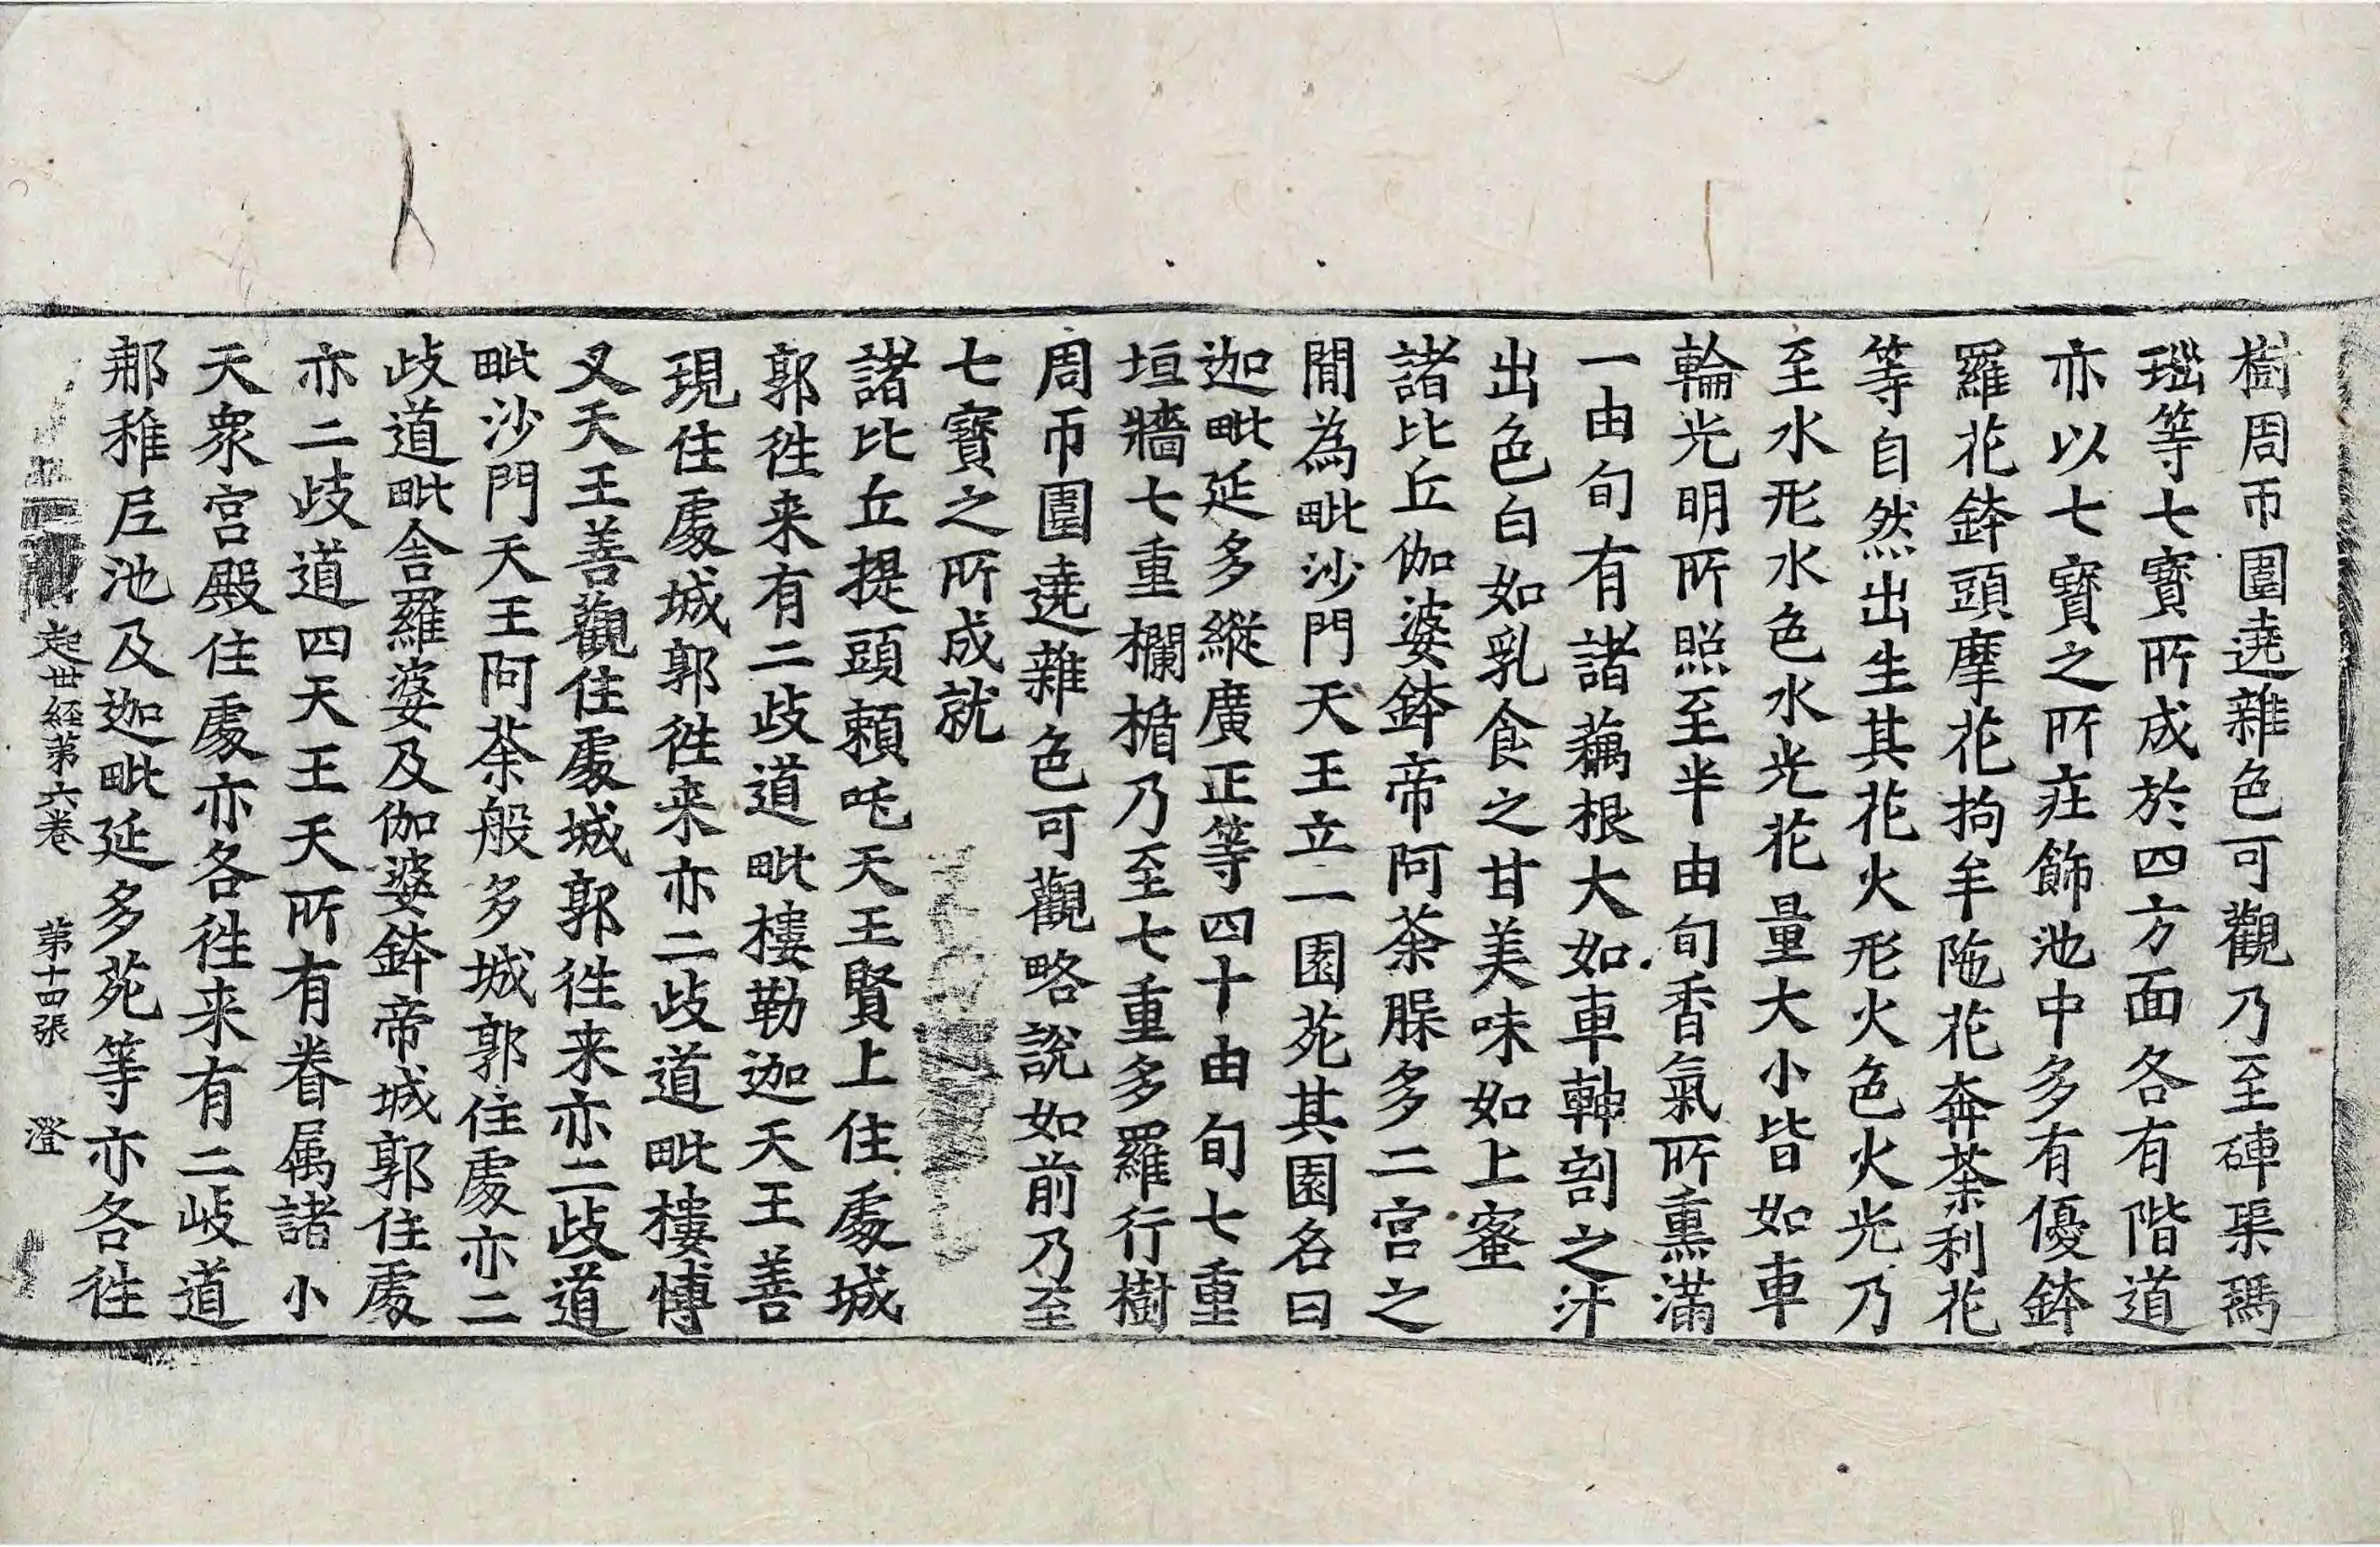 樹周帀圍遶雜色可觀乃至硨渠碼
瑙等七寶所成於四方面各有階道
亦以七寶之所莊飾池中多有優鉢
羅花鉢頭摩花拘牟陁花奔荼利花
等自然出生其花火形火色火光乃
至水形水色水光花量大小皆如車
輪光明所照至半由旬香氣所熏滿
一由旬有諸藕根大如車軸割之汁
出色白如乳食之甘美味如上蜜
諸比丘伽婆鉢帝阿荼䐗多二宮之
閒為毗沙門天王立一園苑其園名曰
迦毗延多縱廣正等四十由旬七重
垣牆七重欄楯乃至七重多羅行樹
周帀圍遶雜色可觀略說如前乃至
七寶之所成就
諸比丘提頭賴吒天王賢上住處城
郭徃来有二歧道毗樓勒迦天王善
現住處城郭徃来亦二歧道毗樓博
叉天王善觀住處城郭徃来亦二歧道
毗沙門天王阿荼般多城郭住處亦二
歧道毗舍羅婆及伽婆鉢帝城郭住處
亦二歧道四天王天所有眷属諸小
天衆宮殿住處亦各徃来有二歧道
那稚尼池及迦毗延多苑等亦各徃
起世經第六卷 第十四張 澄